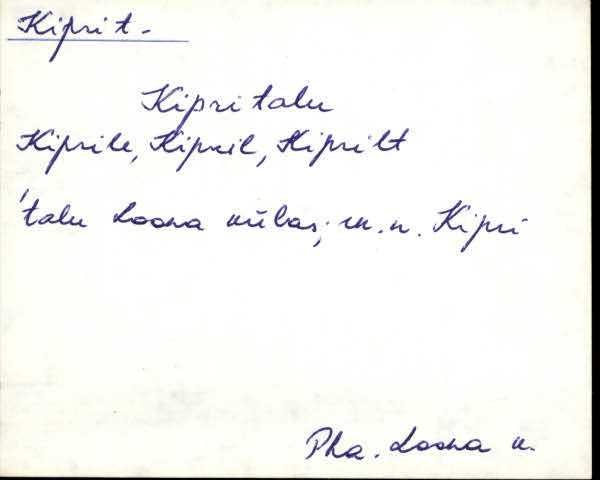 Kiprit-
Kipri talu
Kiprile, Kipril, Kiprilt
'talu Loona külas; m.n. Kipri
Pha. Loona k.